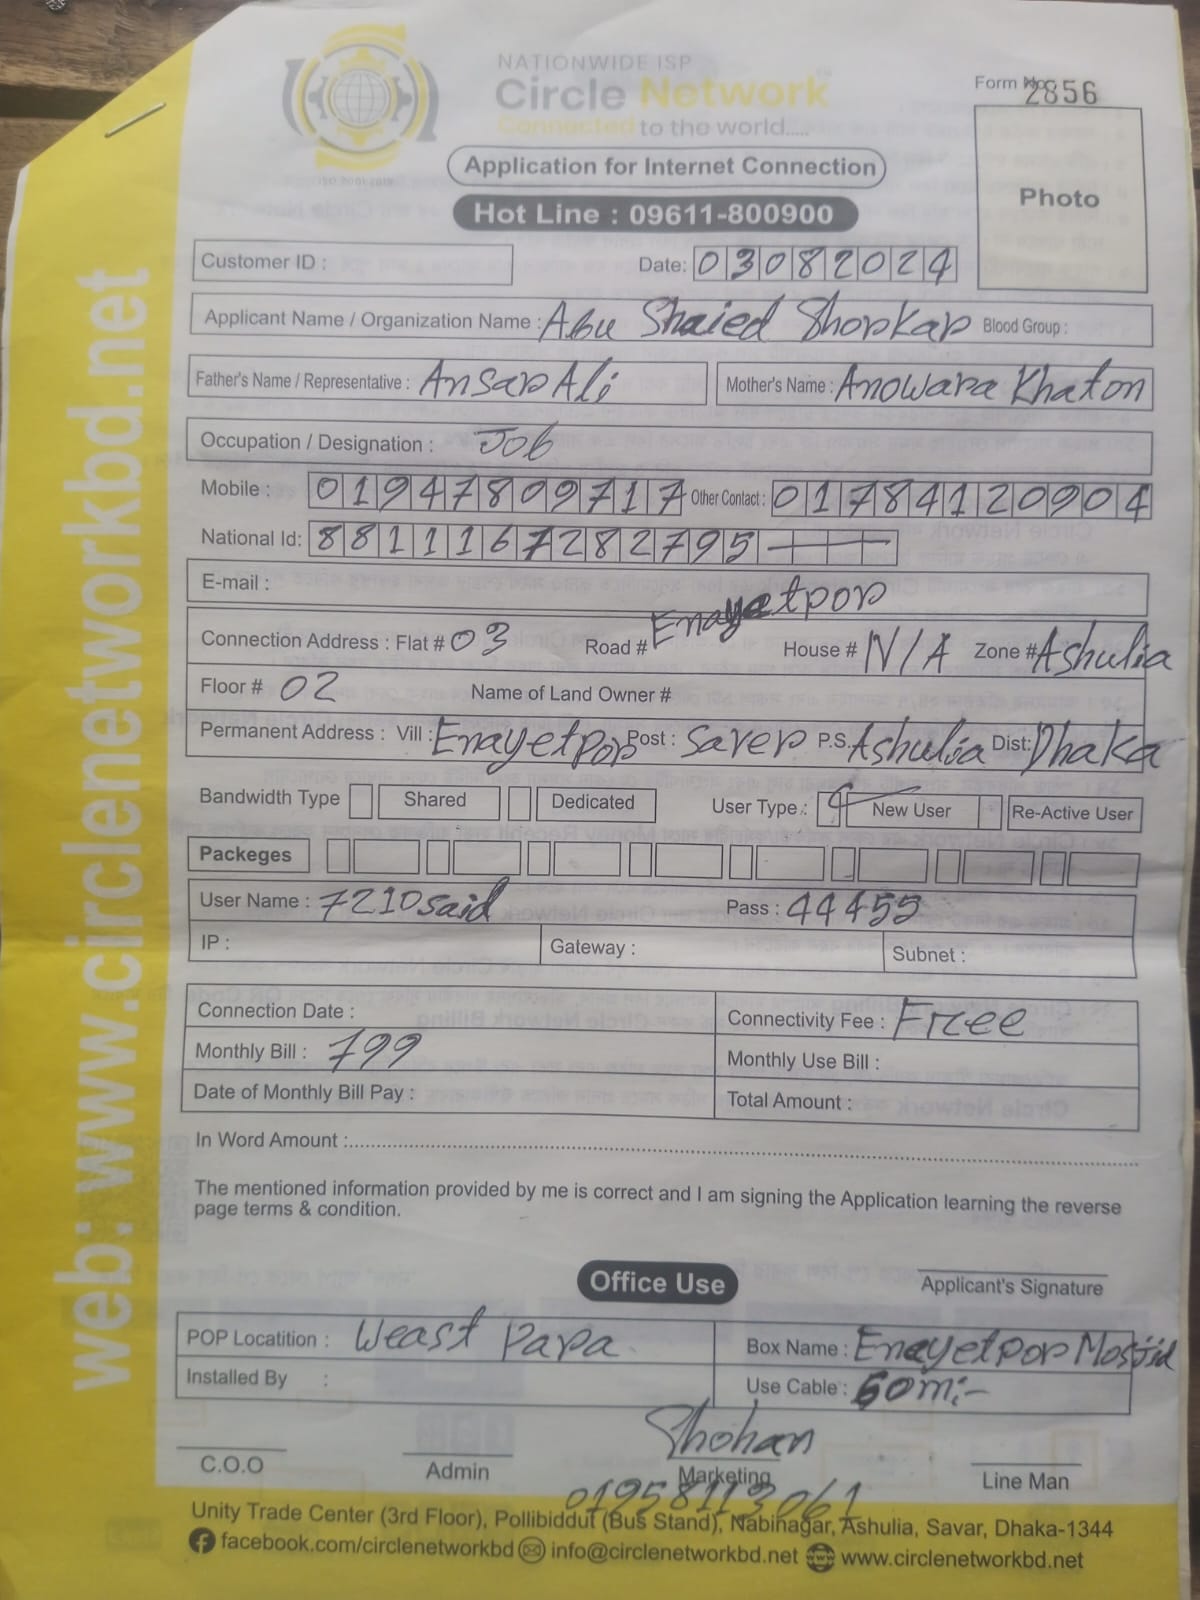 NATIONWIDE ISP
Circle Network™
Connected to the world.....
Form No. 2856
Photo
Application for Internet Connection
Hot Line : 09611-800900
Customer ID :
Date: 03082024
Applicant Name / Organization Name : Abu Shaied Shorkar Blood Group :
Father's Name / Representative : Ansar Ali Mother's Name : Anowara Khaton
Occupation / Designation : Job
Mobile : 01947809717 Other Contact : 01784120904
National Id: 8811167282795
E-mail :
Connection Address : Flat # 03 Road # Enayetpor House # N/A Zone # Ashulia
Floor # 02 Name of Land Owner #
Permanent Address : Vill : Enayetpor Post : Saver P.S. Ashulia Dist: Dhaka
Bandwidth Type Shared Dedicated User Type : New User Re-Active User
Packeges
User Name : 7210said Pass : 44455
IP : Gateway : Subnet :
Connection Date : Connectivity Fee : Free
Monthly Bill : 799 Monthly Use Bill :
Date of Monthly Bill Pay : Total Amount :
In Word Amount :
The mentioned information provided by me is correct and I am signing the Application learning the reverse
page terms & condition.
Applicant's Signature
Office Use
POP Locatition : Weast Para Box Name : Enayetpor Mosjid
Installed By : Use Cable : 60m:-
Shohan
C.O.O Admin Marketing Line Man
01958113061
Unity Trade Center (3rd Floor), Pollibiddut (Bus Stand), Nabinagar, Ashulia, Savar, Dhaka-1344
facebook.com/circlenetworkbd info@circlenetworkbd.net www.circlenetworkbd.net
web: www.circlenetworkbd.net